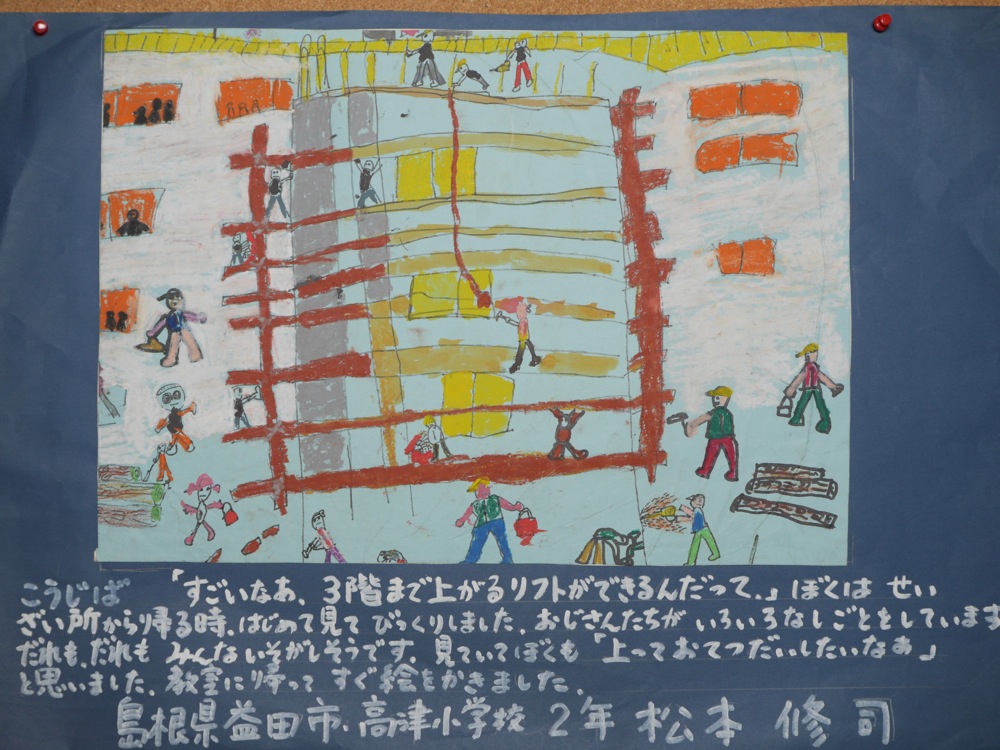 こうじば 「すごいなあ、3階まで上がるリフトができるんだって。」ぼくは せい
ざい所から帰る時、はじめて見て びっくりしました。おじさんたちが いろいろなしごとをしています
だれも、だれも みんないそがしそうです。見ていてぼくも「上っておてつだいしたいなぁ」
と思いました。教室に帰って すぐ絵をかきました。
島根県益田市・高津小学校 2年 松本 修司